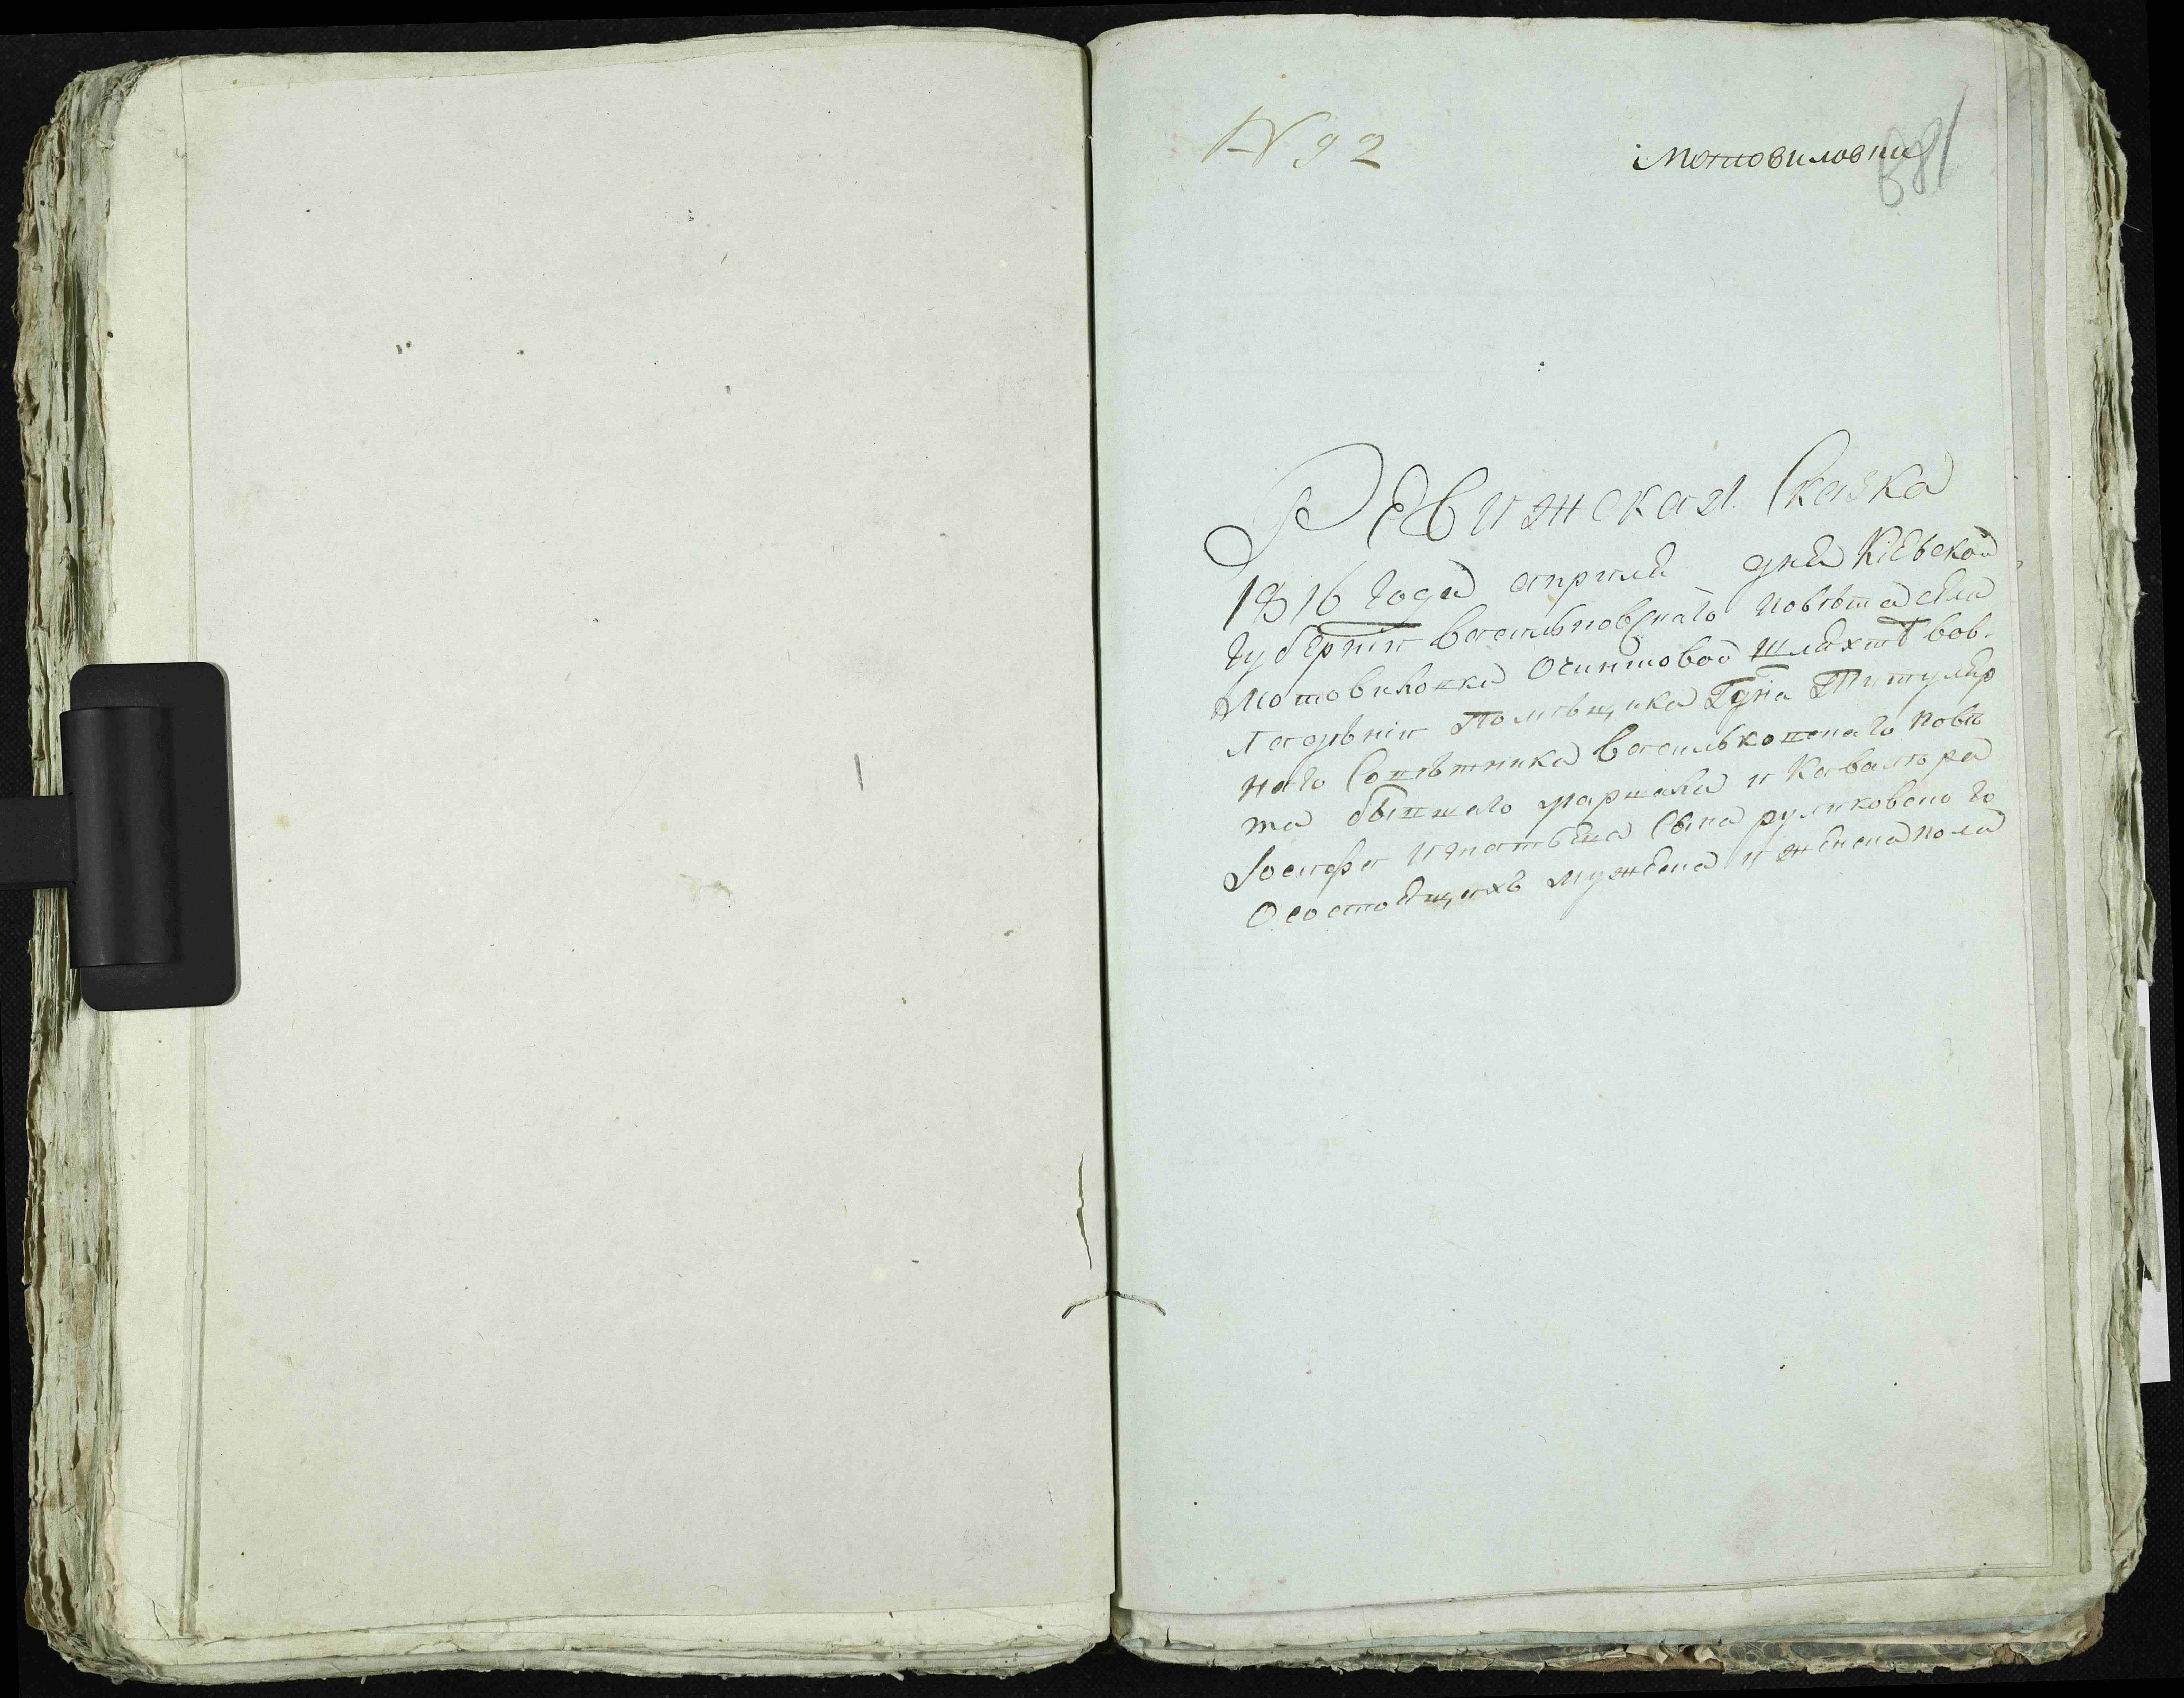 N 92
Мотовиловки
681
Ревижская Сказка
1816 года априля дня Кіевской
Губерніи Васильковскаго повѣта села
Мотовиловки Очиншовой шляхтѣ вов
ладѣніи Помѣщика Гдна Титуляр
наго Совѣтника Васильковскаго повѣ
та бывшаго маршала и Кавалера
Іосифа Игнатьева Сына руликовско го
О состоящихъ мужеска и женска пола